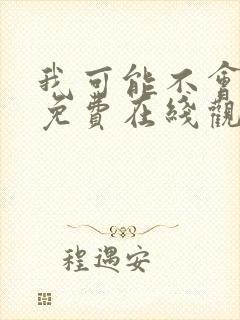 我可能不會
免費在綫觀
程遇安